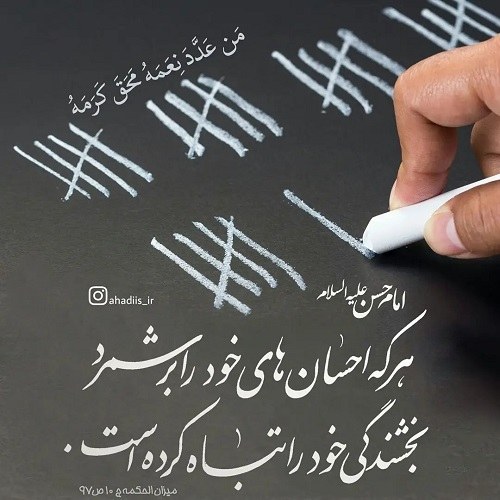 مَن عَدَّدَ نِعَمَهُ مَحَقَ كَرَمَهُ
امام حسن علیه السلام
ahadiis_ir
هرکه احسان های خود را برشمرد
بخشندگی خود را تباه کرده است.
میزان الحکمه ج ۱۰ ص ۹۷